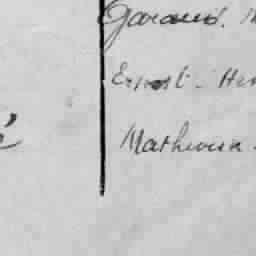 Garaud.
Ernest - Hen
Mathieu